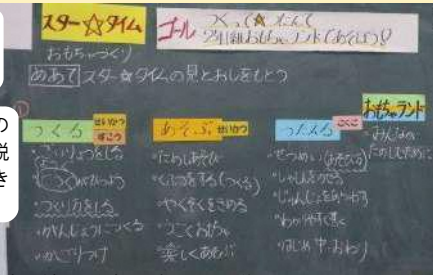 スター☆タイム
ゴール
つくって☆ためして
2年1組おもちゃランドであそぼう!
おもちゃづくり
めあて スター☆タイムの見とおしをもとう
①
つくる せいかつ ずこう
・ざいりょうをしる
がひつよう
・つくり方をしる
・かんじょうにつくる
・かざりつけ
あそぶ せいかつ
・ためしあそび
・くふうをする(つくる)
・やくそくをきめる
・うごくおもちゃ
・楽しくあそぶ
つたえる こくご
・せつめい(あそび方)
・しゃしんをとる
・じゅんじょをあらわす
・わかりやすく書く
・はじめ 中 おわり
おもちゃランド
・みんなの
ためしために
の
説
き